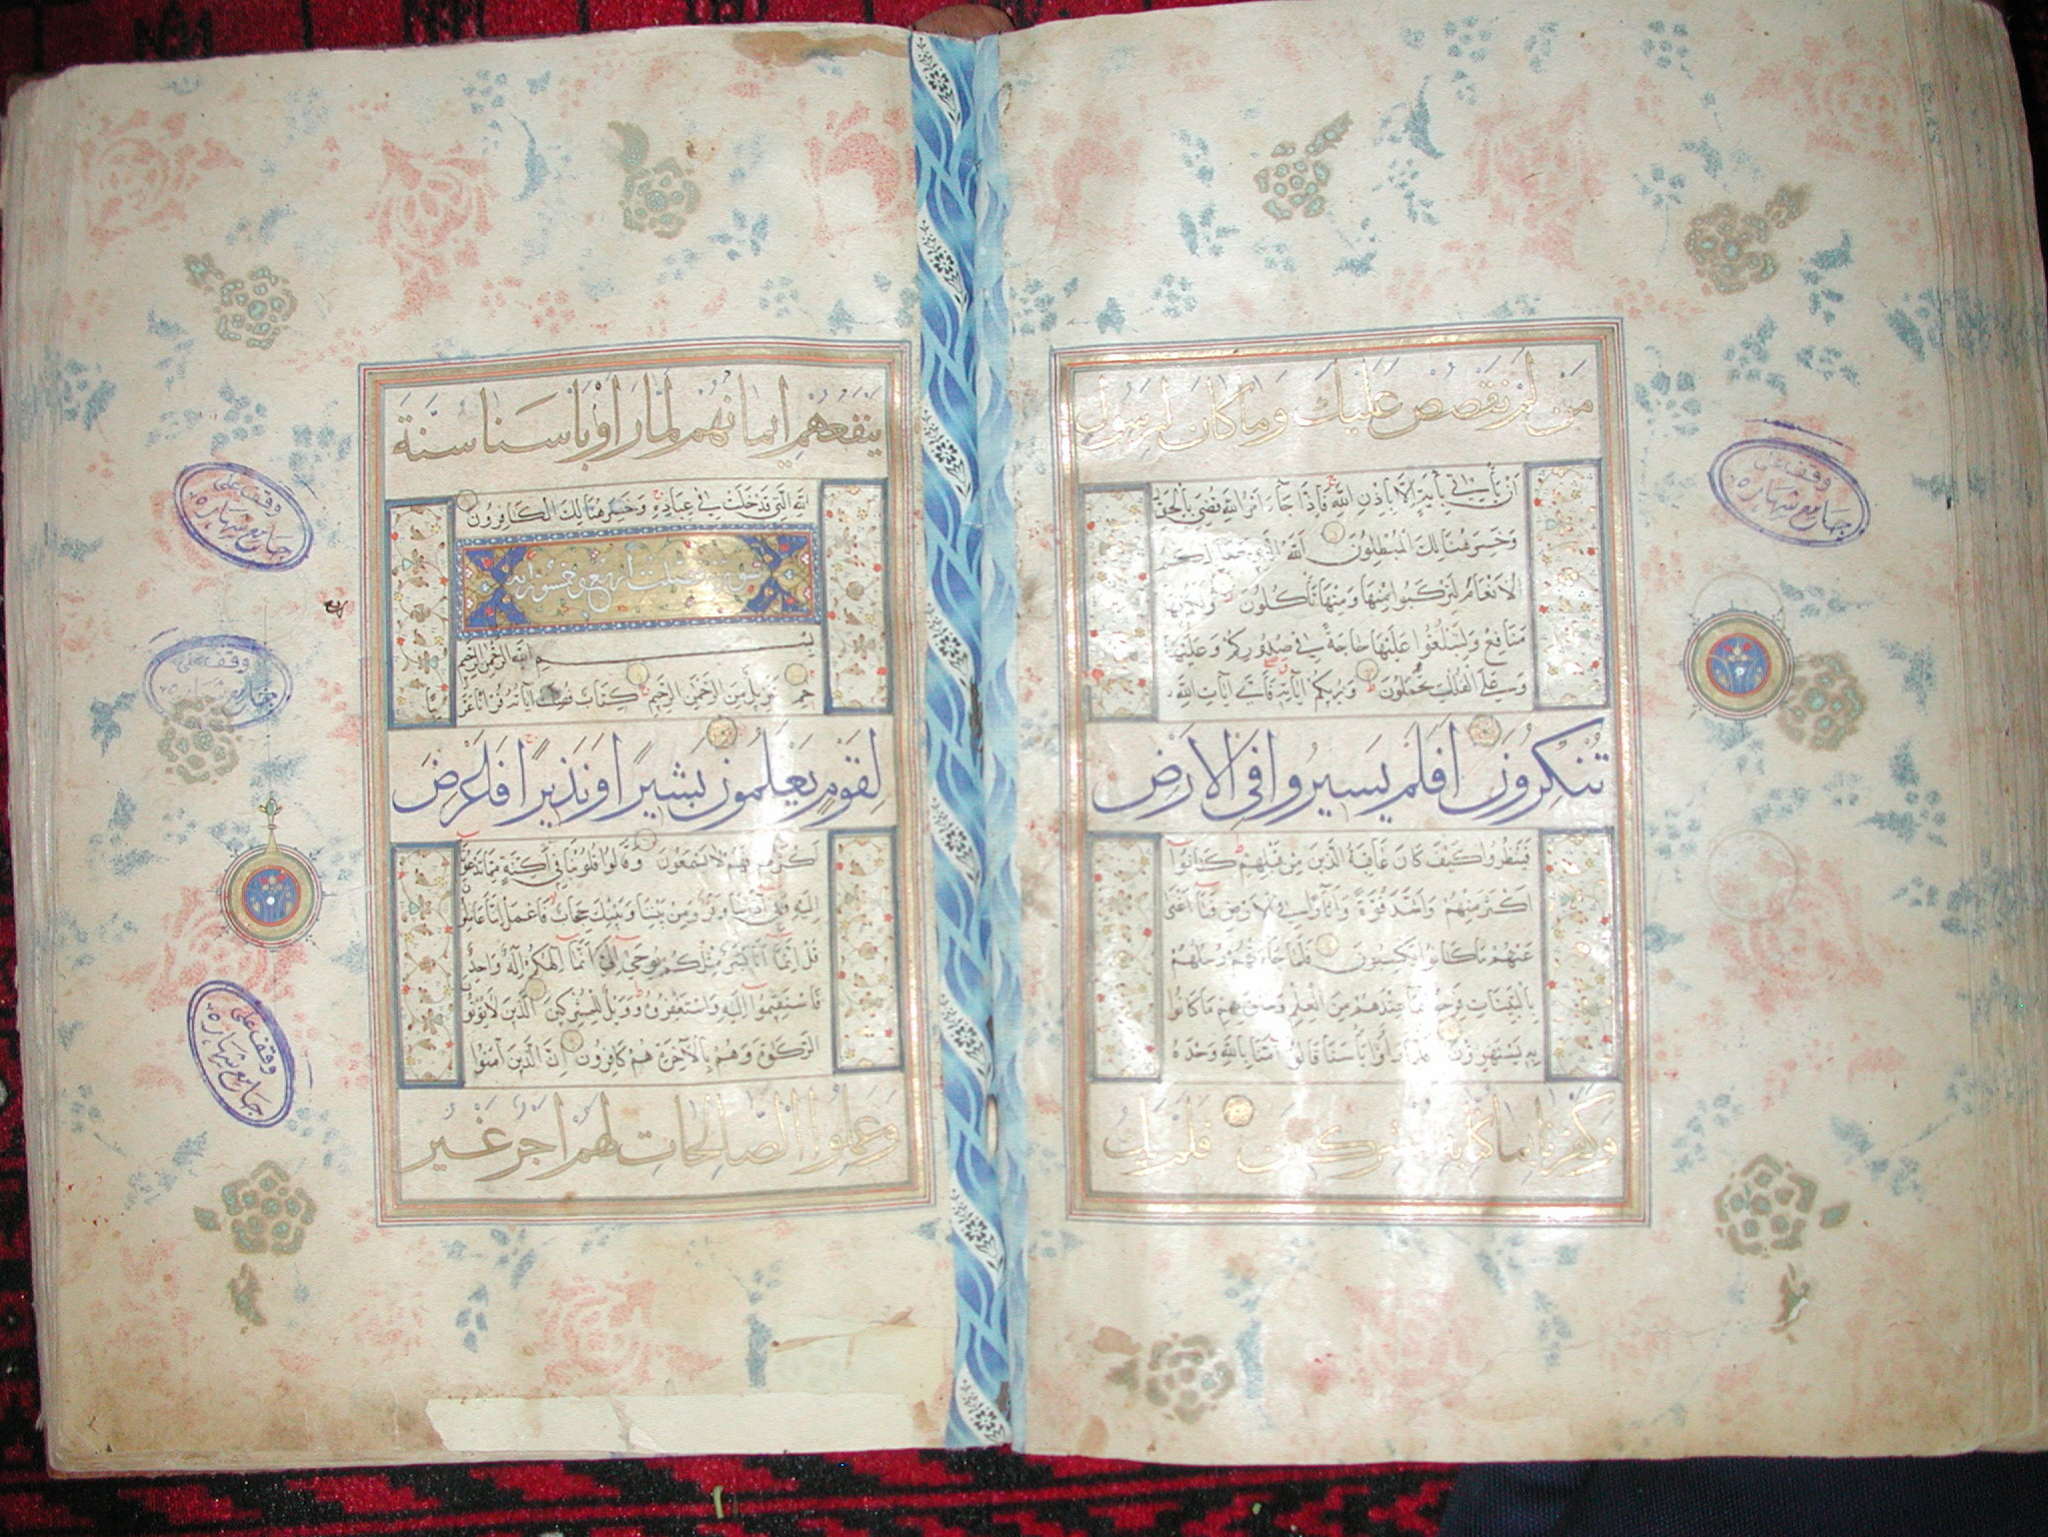 من لم نقصص عليك وما كان لرسول
ان ياتي باية الا باذن الله فاذا جاء امر الله قضي بالحق
وخسر هنالك المبطلون الله الذي جعل لكم
الانعام لتركبوا منها ومنها تاكلون ولكم فيها
منافع ولتبلغوا عليها حاجة في صدوركم وعليها
وعلى الفلك تحملون ويريكم اياته فاي ايات الله
تنكرون افلم يسيروا في الارض
فينظروا كيف كان عاقبة الذين من قبلهم كانوا
اكثر منهم واشد قوة واثارا في الارض فما اغنى
عنهم ما كانوا يكسبون فلما جاءتهم رسلهم
بالبينات فرحوا بما عندهم من العلم وحاق بهم ما كانوا
به يستهزؤن فلما راوا باسنا قالوا امنا بالله وحده
وكفرنا بما كنا به مشركين فلم يك
ينفعهم ايمانهم لما راوا باسنا سنة
الله التي قد خلت في عباده وخسر هنالك الكافرون
سورة فصلت اربع وخمسون اية
بسم الله الرحمن الرحيم
حم تنزيل من الرحمن الرحيم كتاب فصلت اياته قرانا عربيا
لقوم يعلمون بشيرا ونذيرا فاعرض
اكثرهم فهم لا يسمعون وقالوا قلوبنا في اكنة مما تدعونا
اليه وفي اذاننا وقر ومن بيننا وبينك حجاب فاعمل اننا عاملون
قل انما انا بشر مثلكم يوحى الي انما الهكم اله واحد
فاستقيموا اليه واستغفروه وويل للمشركين الذين لا يؤتون
الزكوة وهم بالاخرة هم كافرون ان الذين امنوا
وعملوا الصالحات لهم اجر غير
وقف على
وقف على
وقف على
وقف على